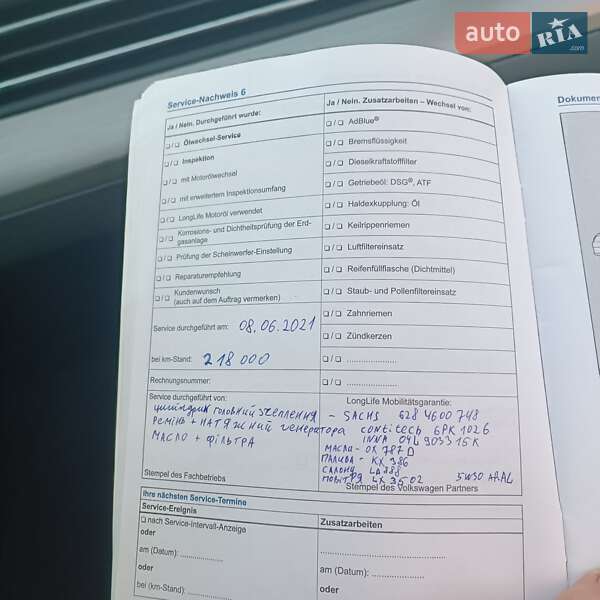 auto RIA .com
Service-Nachweis 6
Dokumen
Ja / Nein. Durchgeführt wurde:
Ja / Nein. Zusatzarbeiten – Wechsel von:
Ölwechsel-Service
AdBlue®
Inspektion
Bremsflüssigkeit
mit Motorölwechsel
Dieselkraftstofffilter
mit erweitertem Inspektionsumfang
Getriebeöl: DSG®, ATF
LongLife Motoröl verwendet
Haldexkupplung: Öl
Korrosions- und Dichtheitsprüfung der Erd-
gasanlage
Keilrippenriemen
Prüfung der Scheinwerfer-Einstellung
Luftfiltereinsatz
Reparaturempfehlung
Reifenfüllflasche (Dichtmittel)
Kundenwunsch
(auch auf dem Auftrag vermerken)
Staub- und Pollenfiltereinsatz
Zahnriemen
Service durchgeführt am: 08.06.2021
Zündkerzen
bei km-Stand: 218 000
Rechnungsnummer:
Service durchgeführt von:
LongLife Mobilitätsgarantie:
циліндрик головний зчеплення – SACHS 6284600748
ремінь + натяжний генератора contitech 6PK1026
INNA
масло + фільтра
масла – OX 787D
палива – KX 386
салону LA888
повітря LX 3502
5W30
Stempel des Fachbetriebs
Stempel des Volkswagen Partners
Ihre nächsten Service-Termine
Service-Ereignis
Zusatzarbeiten
nach Service-Intervall-Anzeige
oder
am (Datum):
oder
bei (km-Stand):
am (Datum):
oder